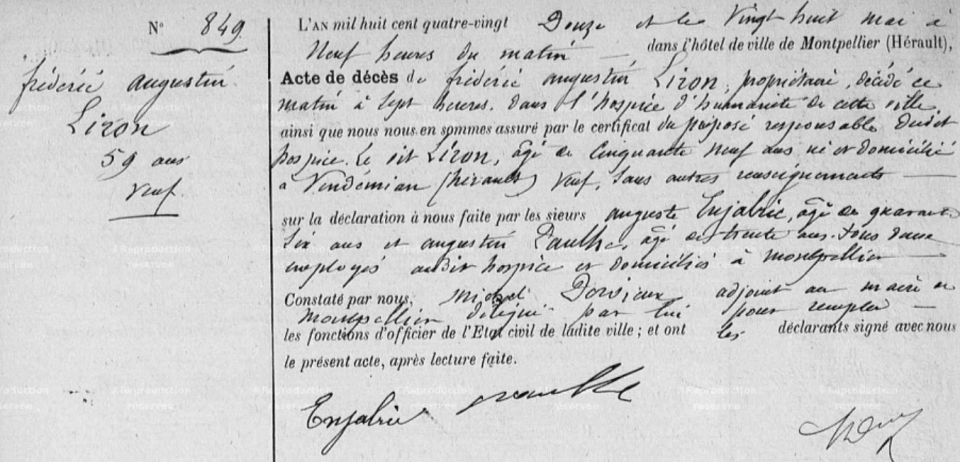 N° 849
frédéric augustin
Liron
59 ans
veuf.
L'AN mil huit cent quatre-vingt Douze et le vingt huit mai à
Neuf heures du matin — dans l'hôtel de ville de Montpellier (Hérault),
Acte de décès de frédéric augustin Liron, propriétaire, décédé ce
matin à sept heures. dans l'hospice d'humanité de cette ville,
ainsi que nous nous en sommes assuré par le certificat du préposé responsable dudit
hospice. Le dit Liron, âgé de Cinquante Neuf ans, né et domicilié
à Vendémian (hérault) veuf, sans autres renseignements —
sur la déclaration à nous faite par les sieurs auguste Enjalric, âgé de quarante
six ans et augustin Paulhe, âgé de trente ans. tous deux
employés audit hospice et domiciliés à montpellier —
Constaté par nous, michel adjoint au maire de
montpellier délégué par lui pour remplir —
les fonctions d'officier de l'Etat civil de ladite ville ; et ont les déclarants signé avec nous
le présent acte, après lecture faite.
Enjalric